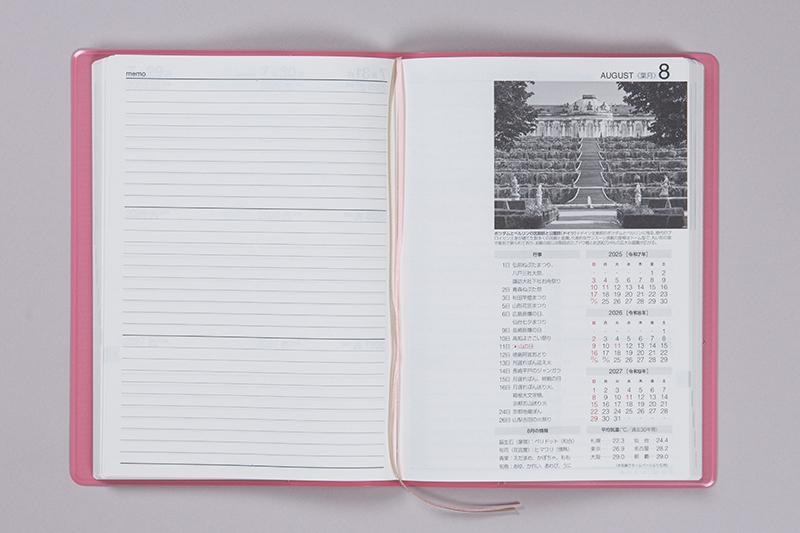 memo
AUGUST〈葉月〉8
ポツダムとベルリンの宮殿群と公園群(ドイツ)
行事
1日 弘前ねぷたまつり、
八戸三社大祭、
諏訪大社下社お舟祭り
2日 青森ねぶた祭
3日 秋田竿燈まつり
5日 山形花笠まつり
6日 広島原爆の日、
仙台七夕まつり
9日 長崎原爆の日
10日 高知よさこい祭り
11日 ●山の日
12日 徳島阿波おどり
13日 月遅れぼん迎え火
14日 長崎平戸のジャンガラ
15日 月遅れぼん、終戦の日
16日 月遅れぼん送り火、
箱根大文字焼、
京都五山送り火
24日 京都地蔵ぼん
26日 山梨吉田の火祭り
8月の情報
誕生石(象徴):ペリドット(和合)
旬花(花言葉):ヒマワリ(情熱)
青果:えだまめ、かぼちゃ、もも
旬魚:あゆ、かれい、あわび、うに
2025［令和7年］
日 月 火 水 木 金 土
1 2
3 4 5 6 7 8 9
10 11 12 13 14 15 16
17 18 19 20 21 22 23
24/31 25 26 27 28 29 30
2026［令和8年］
日 月 火 水 木 金 土
1
2 3 4 5 6 7 8
9 10 11 12 13 14 15
16 17 18 19 20 21 22
23/30 24/31 25 26 27 28 29
2027［令和9年］
日 月 火 水 木 金 土
1 2 3 4 5 6 7
8 9 10 11 12 13 14
15 16 17 18 19 20 21
22 23 24 25 26 27 28
29 30 31
平均気温(℃／過去30年間)
札幌 22.3 仙台 24.4
東京 26.9 名古屋 28.2
大阪 29.0 那覇 29.0